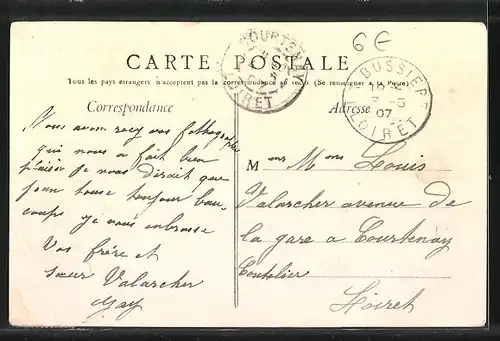 6€
CARTE POSTALE
Tous les pays étrangers n'acceptent pas la correspondance au recto (Se renseigner à la Poste)
COURTENAY
LOIRET
LA BUSSIERE
07
LOIRET
Correspondance
Adresse
Nous avons recu vos fothographie
qui nous a fait bien
plaisir je nous dirait que
bau
coups je vous enbrasse
Vos frère et
sœur Valarcher
M Louis
Valarcher avenue de
la gare a Courtenay
Coutelier
Loiret